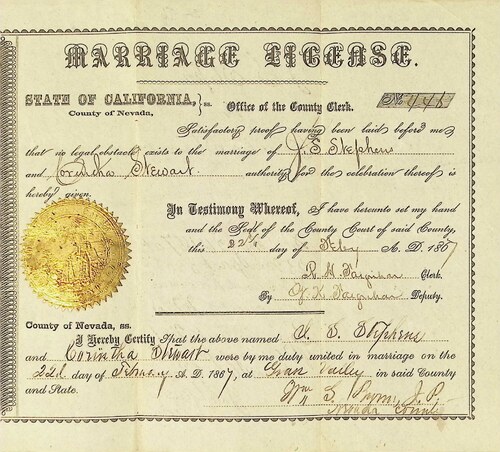 MARRIAGE LICENSE.
STATE OF CALIFORNIA, } ss.
County of Nevada,
Office of the County Clerk.
No 446
Satisfactory proof having been laid before me
that no legal obstacle exists to the marriage of J. S. Stephens
and Corintha Stewart authority for the celebration thereof is
hereby given.
In Testimony Whereof, I have hereunto set my hand
and the Seal of the County Court of said County,
this 22d day of Feby A. D. 1867
Clerk.
By Deputy.
County of Nevada, ss.
I Hereby Certify That the above named J. S. Stephens
and Corintha Stewart were by me duly united in marriage on the
22d day of February A. D. 1867, at Grass Valley in said County
and State.
Wm S. J. P.
Nevada County